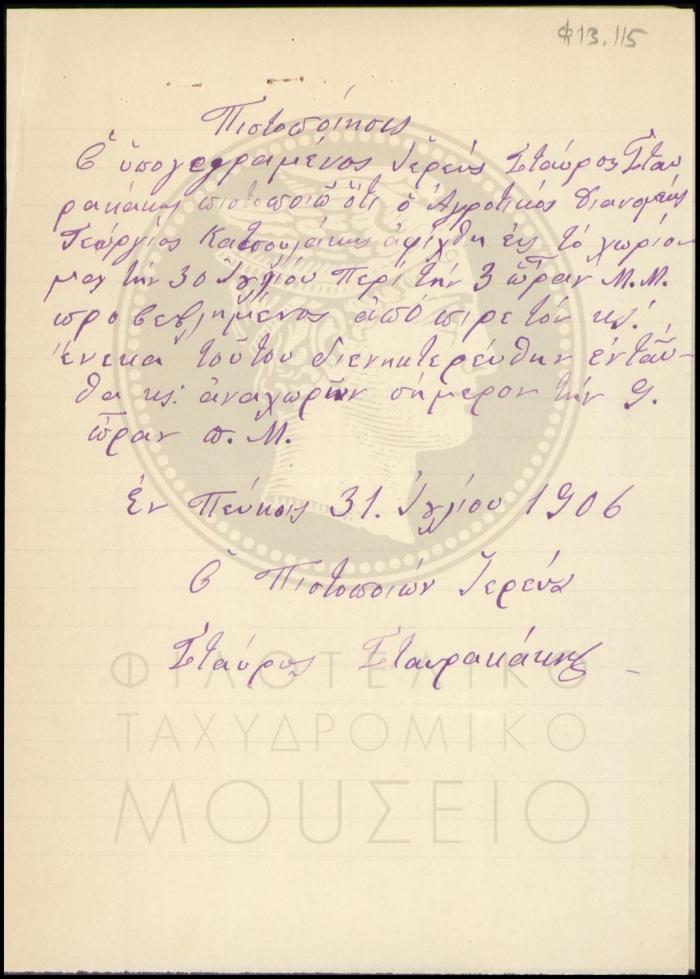 Φ13.115
Πιστοποίησις
Ὁ ὑπογεγραμένος Ἱερεύς Σταύρος Σταυ
ρακάκης πιστοποιῶ ὅτι ὁ Ἀγροτικός διανομεύς
Γεώργιος ἀφίχθη εἰς τό χωρίον
μας τήν 30 Ἰουλίου περί τήν 3 ὥραν Μ.Μ.
προβεβλημένος ἀπό πιρετόν κς:
ἕνεκα τοῦτου διενηκτερεύθην ἐνταῦ-
θα κς: ἀναχωρῶν σήμερον τήν 9.
ὥραν π.Μ.
Ἐν Πεύκοις 31. Ἰουλίου 1906
Ὁ Πιστοποιών Ἱερεύς
Σταύρος Σταυρακάκης
ΦΙΛΟΤΕΛΙΚΟ
ΤΑΧΥΔΡΟΜΙΚΟ
ΜΟΥΣΕΙΟ